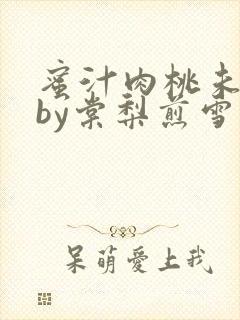 蜜汁肉桃未
by棠梨煎雪
呆萌愛上我